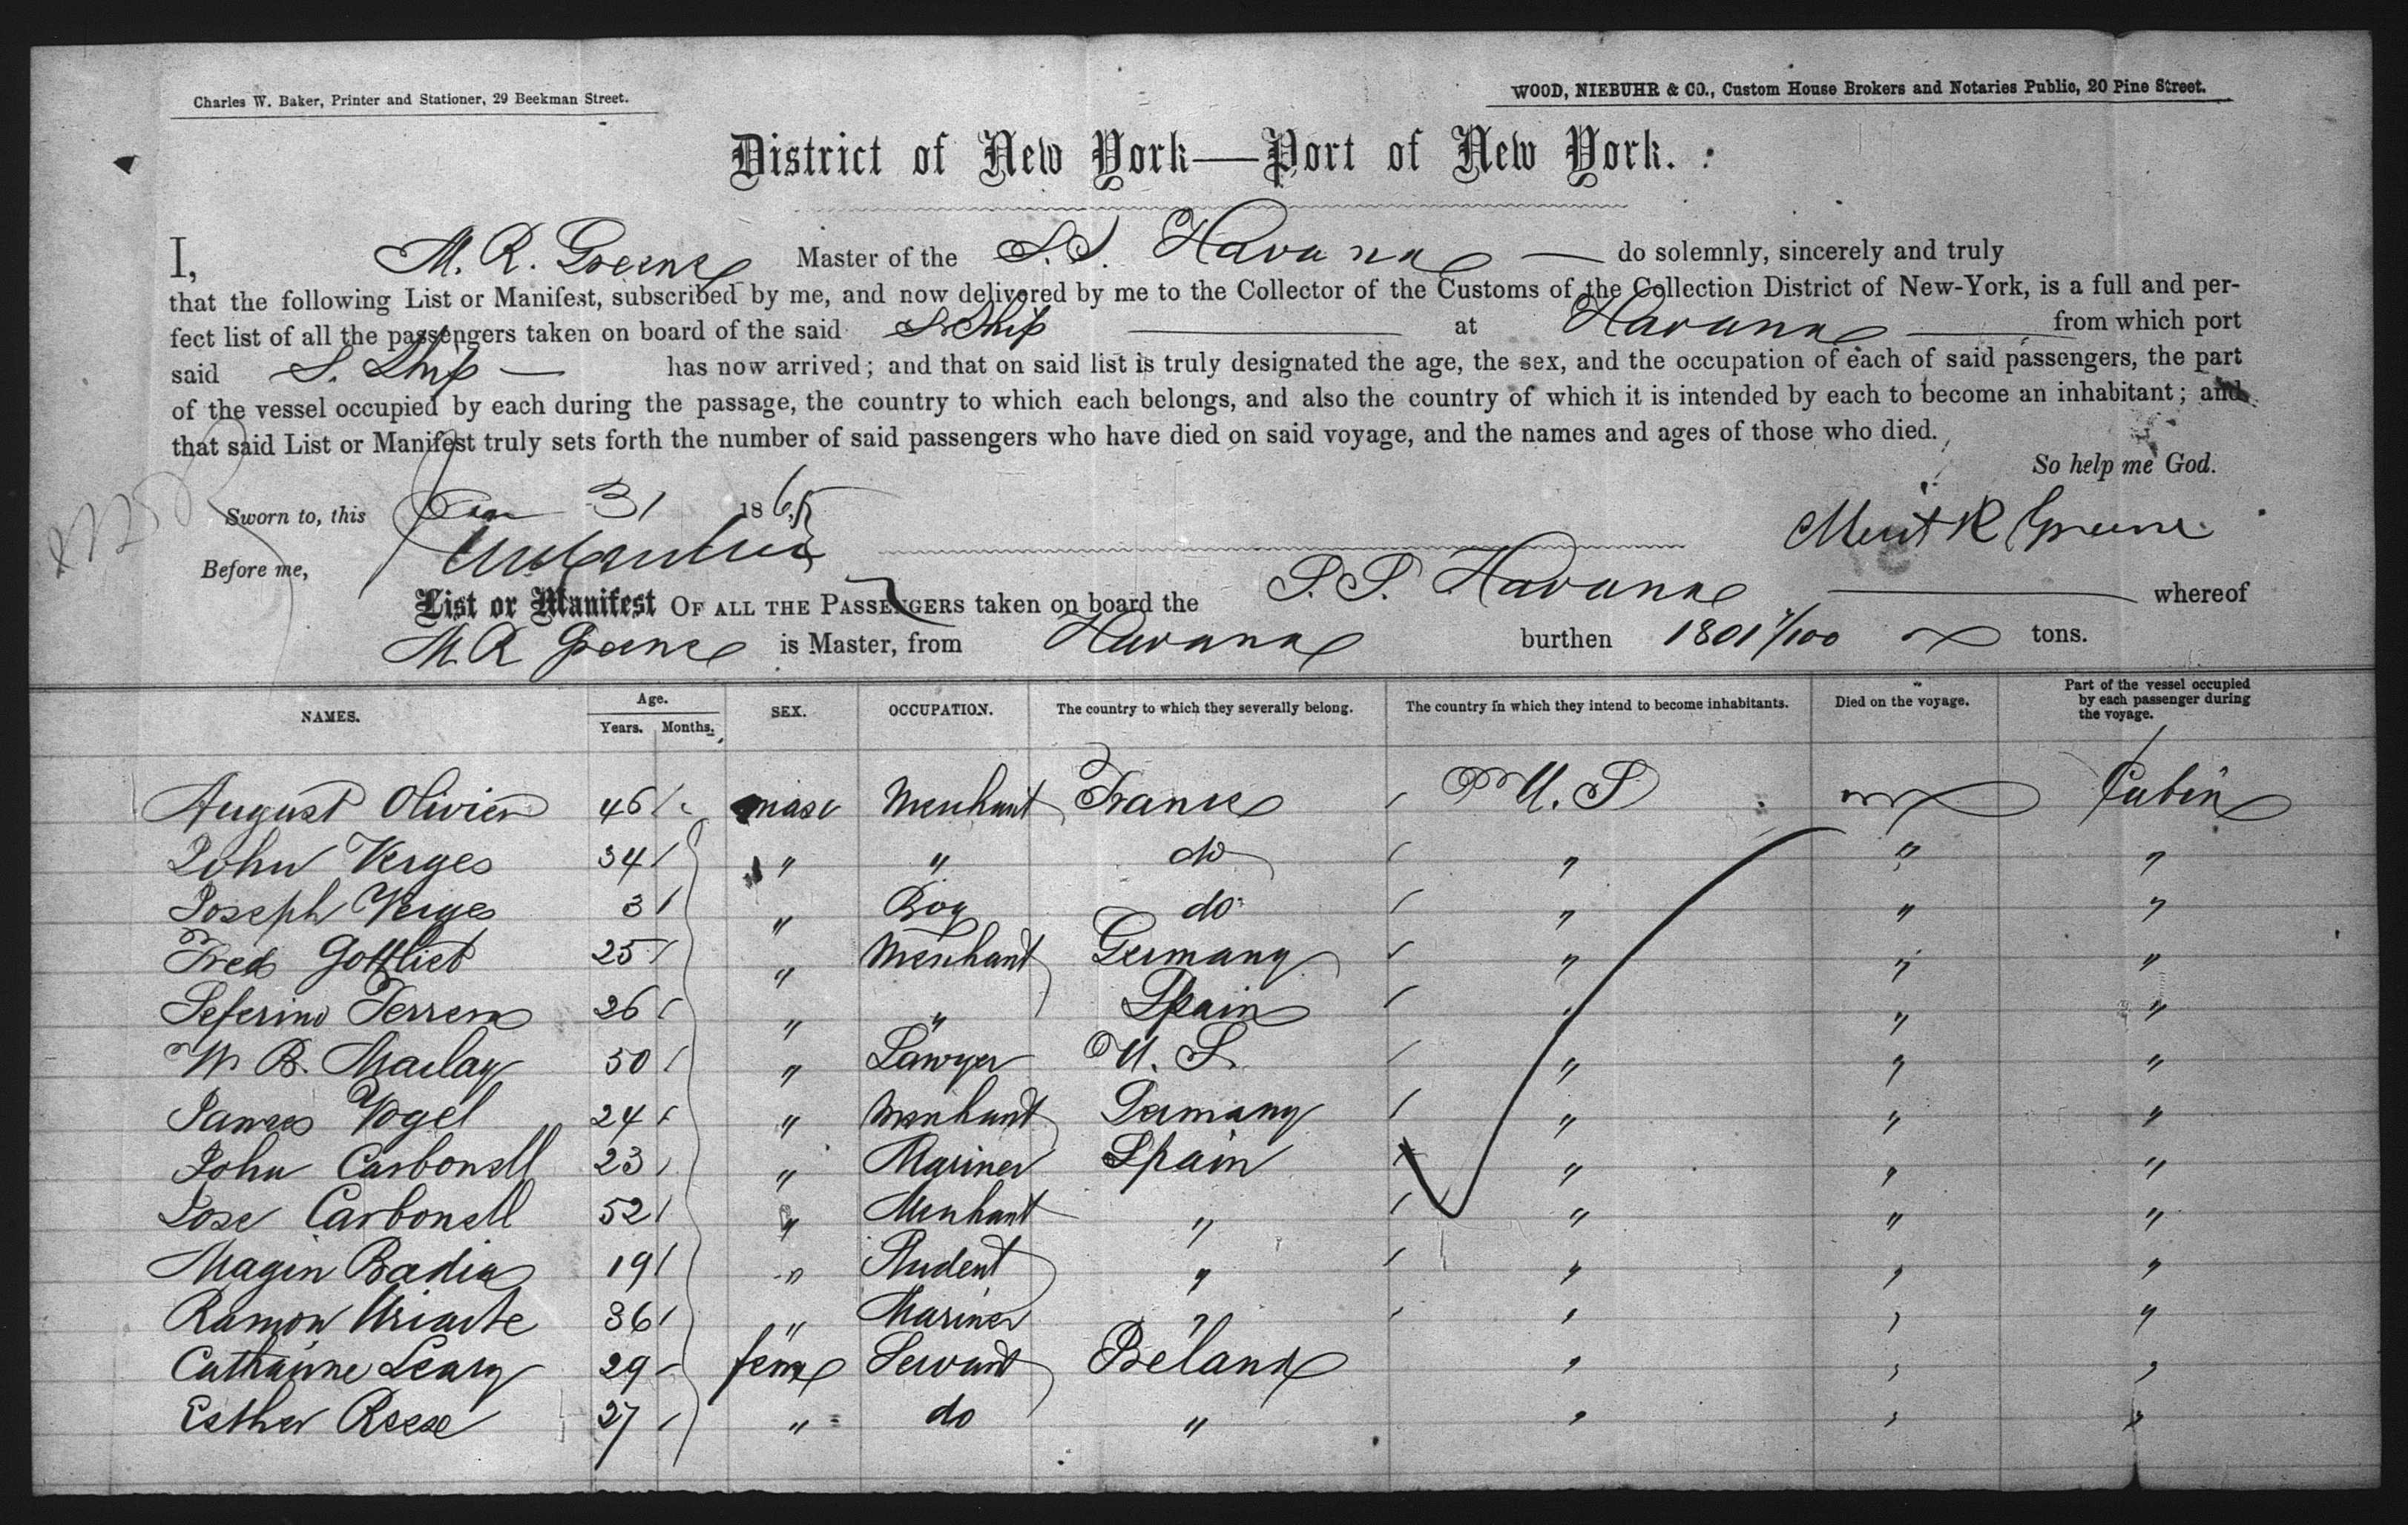 Charles W. Baker, Printer and Stationer, 29 Beekman Street.
WOOD, NIEBUHR & CO., Custom House Brokers and Notaries Public, 20 Pine Street.
District of New York—Port of New York.
I, M. R. Greene Master of the S.S. Havana do solemnly, sincerely and truly
that the following List or Manifest, subscribed by me, and now delivered by me to the Collector of the Customs of the Collection District of New-York, is a full and per-
fect list of all the passengers taken on board of the said S. Ship at Havana from which port
said S. Ship has now arrived; and that on said list is truly designated the age, the sex, and the occupation of each of said passengers, the part
of the vessel occupied by each during the passage, the country to which each belongs, and also the country of which it is intended by each to become an inhabitant; and
that said List or Manifest truly sets forth the number of said passengers who have died on said voyage, and the names and ages of those who died.
So help me God.
Sworn to, this Jan 31 1865
Merit R Greene
Before me,
List or Manifest OF ALL THE PASSENGERS taken on board the S.S. Havana whereof
M R Greene is Master, from Havana burthen 1801 1/100 tons.
NAMES. Age. Years. Months. SEX. OCCUPATION. The country to which they severally belong. The country in which they intend to become inhabitants. Died on the voyage. Part of the vessel occupied by each passenger during the voyage.
August Olivier 46 masc Merchant France U.S Cabin
John Verges 34 " " do " " "
Joseph Verges 3 " Boy do " " "
Fred Gottlieb 25 " Merchant Germany " " "
Seferino Ferrera 26 " " Spain " " "
W. B. Maclay 50 " Lawyer U.S. " " "
James Vogel 24 " Merchant Germany " " "
John Carbonell 23 " Mariner Spain " " "
Jose Carbonell 52 " Merchant " " " "
Magin Badia 19 " Student " " " "
Ramon Uriarte 36 " Mariner " " " "
Catharine Leary 29 feme Servant Ireland " " "
Esther Reese 27 " do " " " "